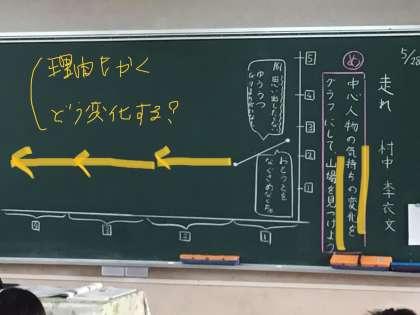 5/28
走れ
村中李衣文
め
中心人物の気持ちの変化を
グラフにして、山場を見つけよう
5
4
3
2
1
ゆううつ
おとうとを
なぐさめなくちゃ。
理由もかく
どう変化する?
1
2
3
4